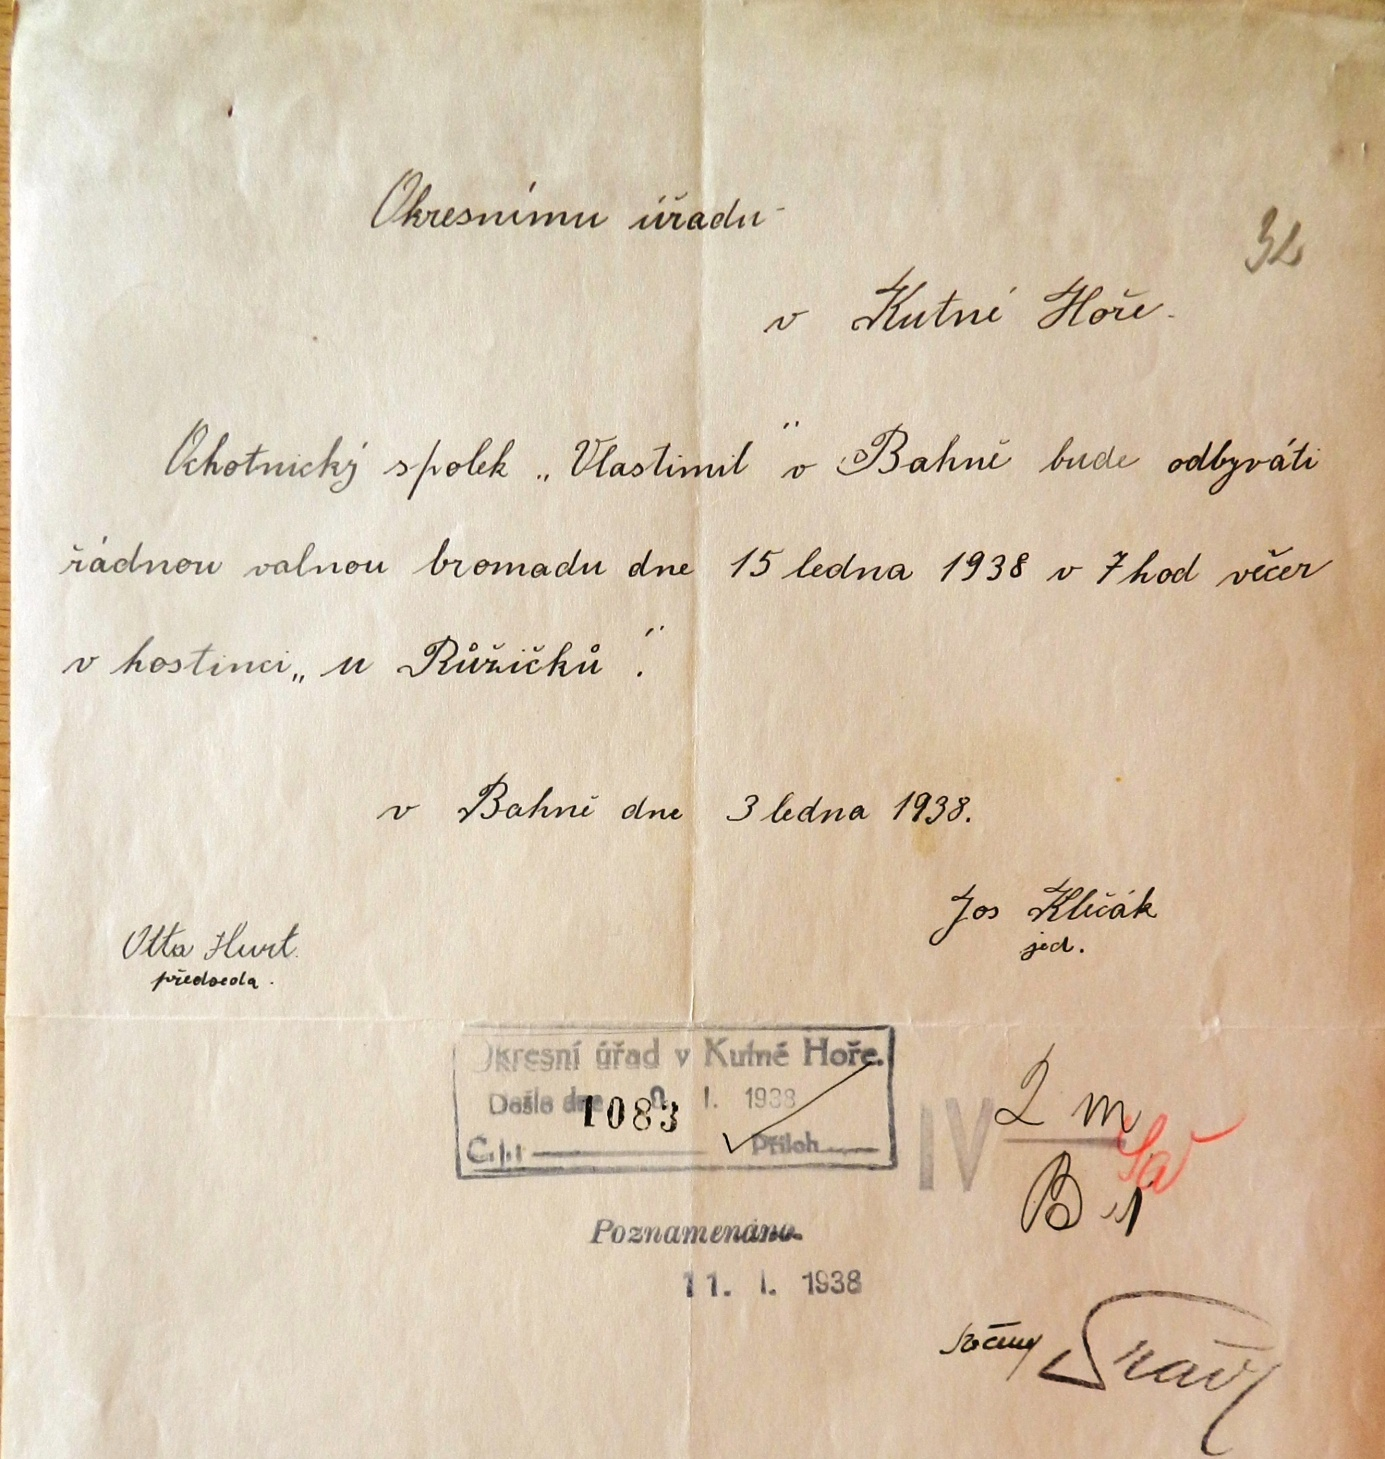 Okresnímu úřadu
32
v Kutné Hoře.
Ochotnický spolek „Vlastimil" v Bahně bude odbyváti
řádnou valnou hromadu dne 15 ledna 1938 v 7 hod večer
v hostinci „u Růžičků".
v Bahně dne 3 ledna 1938.
Jos Kličák
jed.
Otta Hurt.
předseda.
Okresní úřad v Kutné Hoře.
Došlo dne I. 1938
1083
Příloh
IV
2 m
B
Poznamenáno.
11. I. 1938